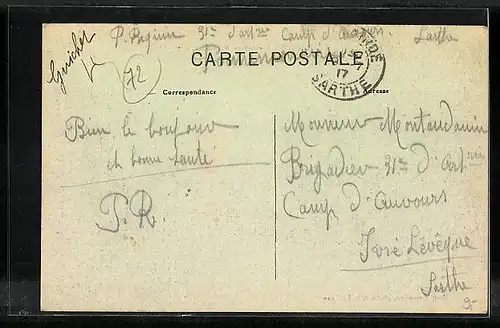 P. 31e d'artrie Camp d'Auvours Sarthe
Guichet
72
CARTE POSTALE
17
SARTHE
Correspondance
Adresse
Bien le bonjour
et bonne santé
P. R.
Monsieur Montaudouin
Brigadier 31e d'Artrie
Camp d'Auvours
Ivré Lévêque
Sarthe